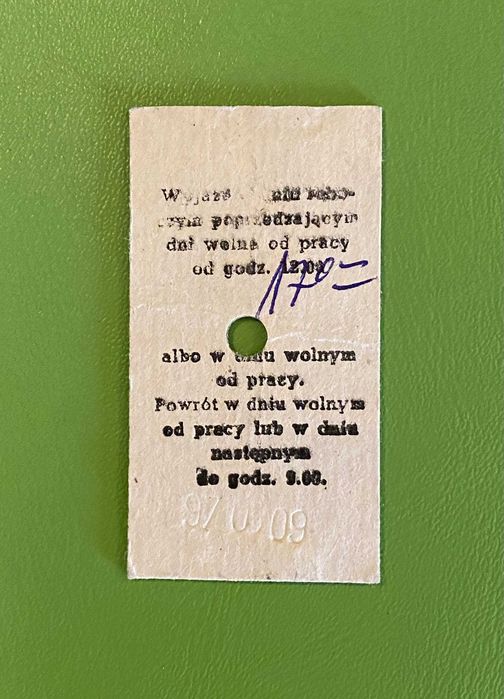 Wyjazd dniu robo-
czym poprzedzającym
dni wolne od pracy
od godz. 12.00
170-
albo w dniu wolnym
od pracy.
Powrót w dniu wolnym
od pracy lub w dniu
następnym
do godz. 9.00.